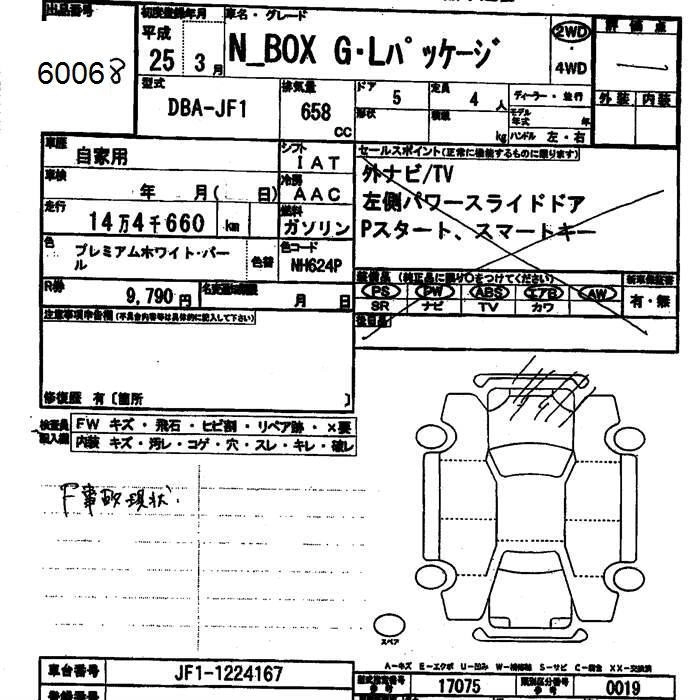 出品番号
60068
初度登録年月
平成
25 3月
車名・グレード
N_BOX G・Lパッケージ
2WD
・
4WD
評価点
外装 内装
型式
DBA-JF1
排気量
658
CC
ドア
5
定員
4 人
形状
積載
kg
ディーラー・並行
モデル
年式 年
ハンドル 左・右
車歴
自家用
シフト
IAT
車検
年 月( 日)
冷房
AAC
走行
14万4千660 km
燃料
ガソリン
色
プレミアムホワイト・パー
ル
色替
色コード
NH624P
R券
9,790円
名変期限
月 日
セールスポイント(正常に機能するものに限ります)
外ナビ/TV
左側パワースライドドア
Pスタート、スマートキー
装備品 (純正品に限り○をつけてください)
PS PW ABS エアB AW
SR ナビ TV カワ
新車保証書
有・無
後日品
注意事項申告欄(不具合内容等は具体的に記入して下さい)
修復歴 有〔箇所 〕
検査員
記入欄
FW キズ・飛石・ヒビ割・リペア跡・×要
内装 キズ・汚レ・コゲ・穴・スレ・キレ・破レ
F事故現状.
スペア
A-キズ E-エクボ U-凹み W-補修跡 S-サビ C-腐食 XX-交換済
車台番号
JF1-1224167
型式指定番号
17075
類別区分番号
0019
登録番号